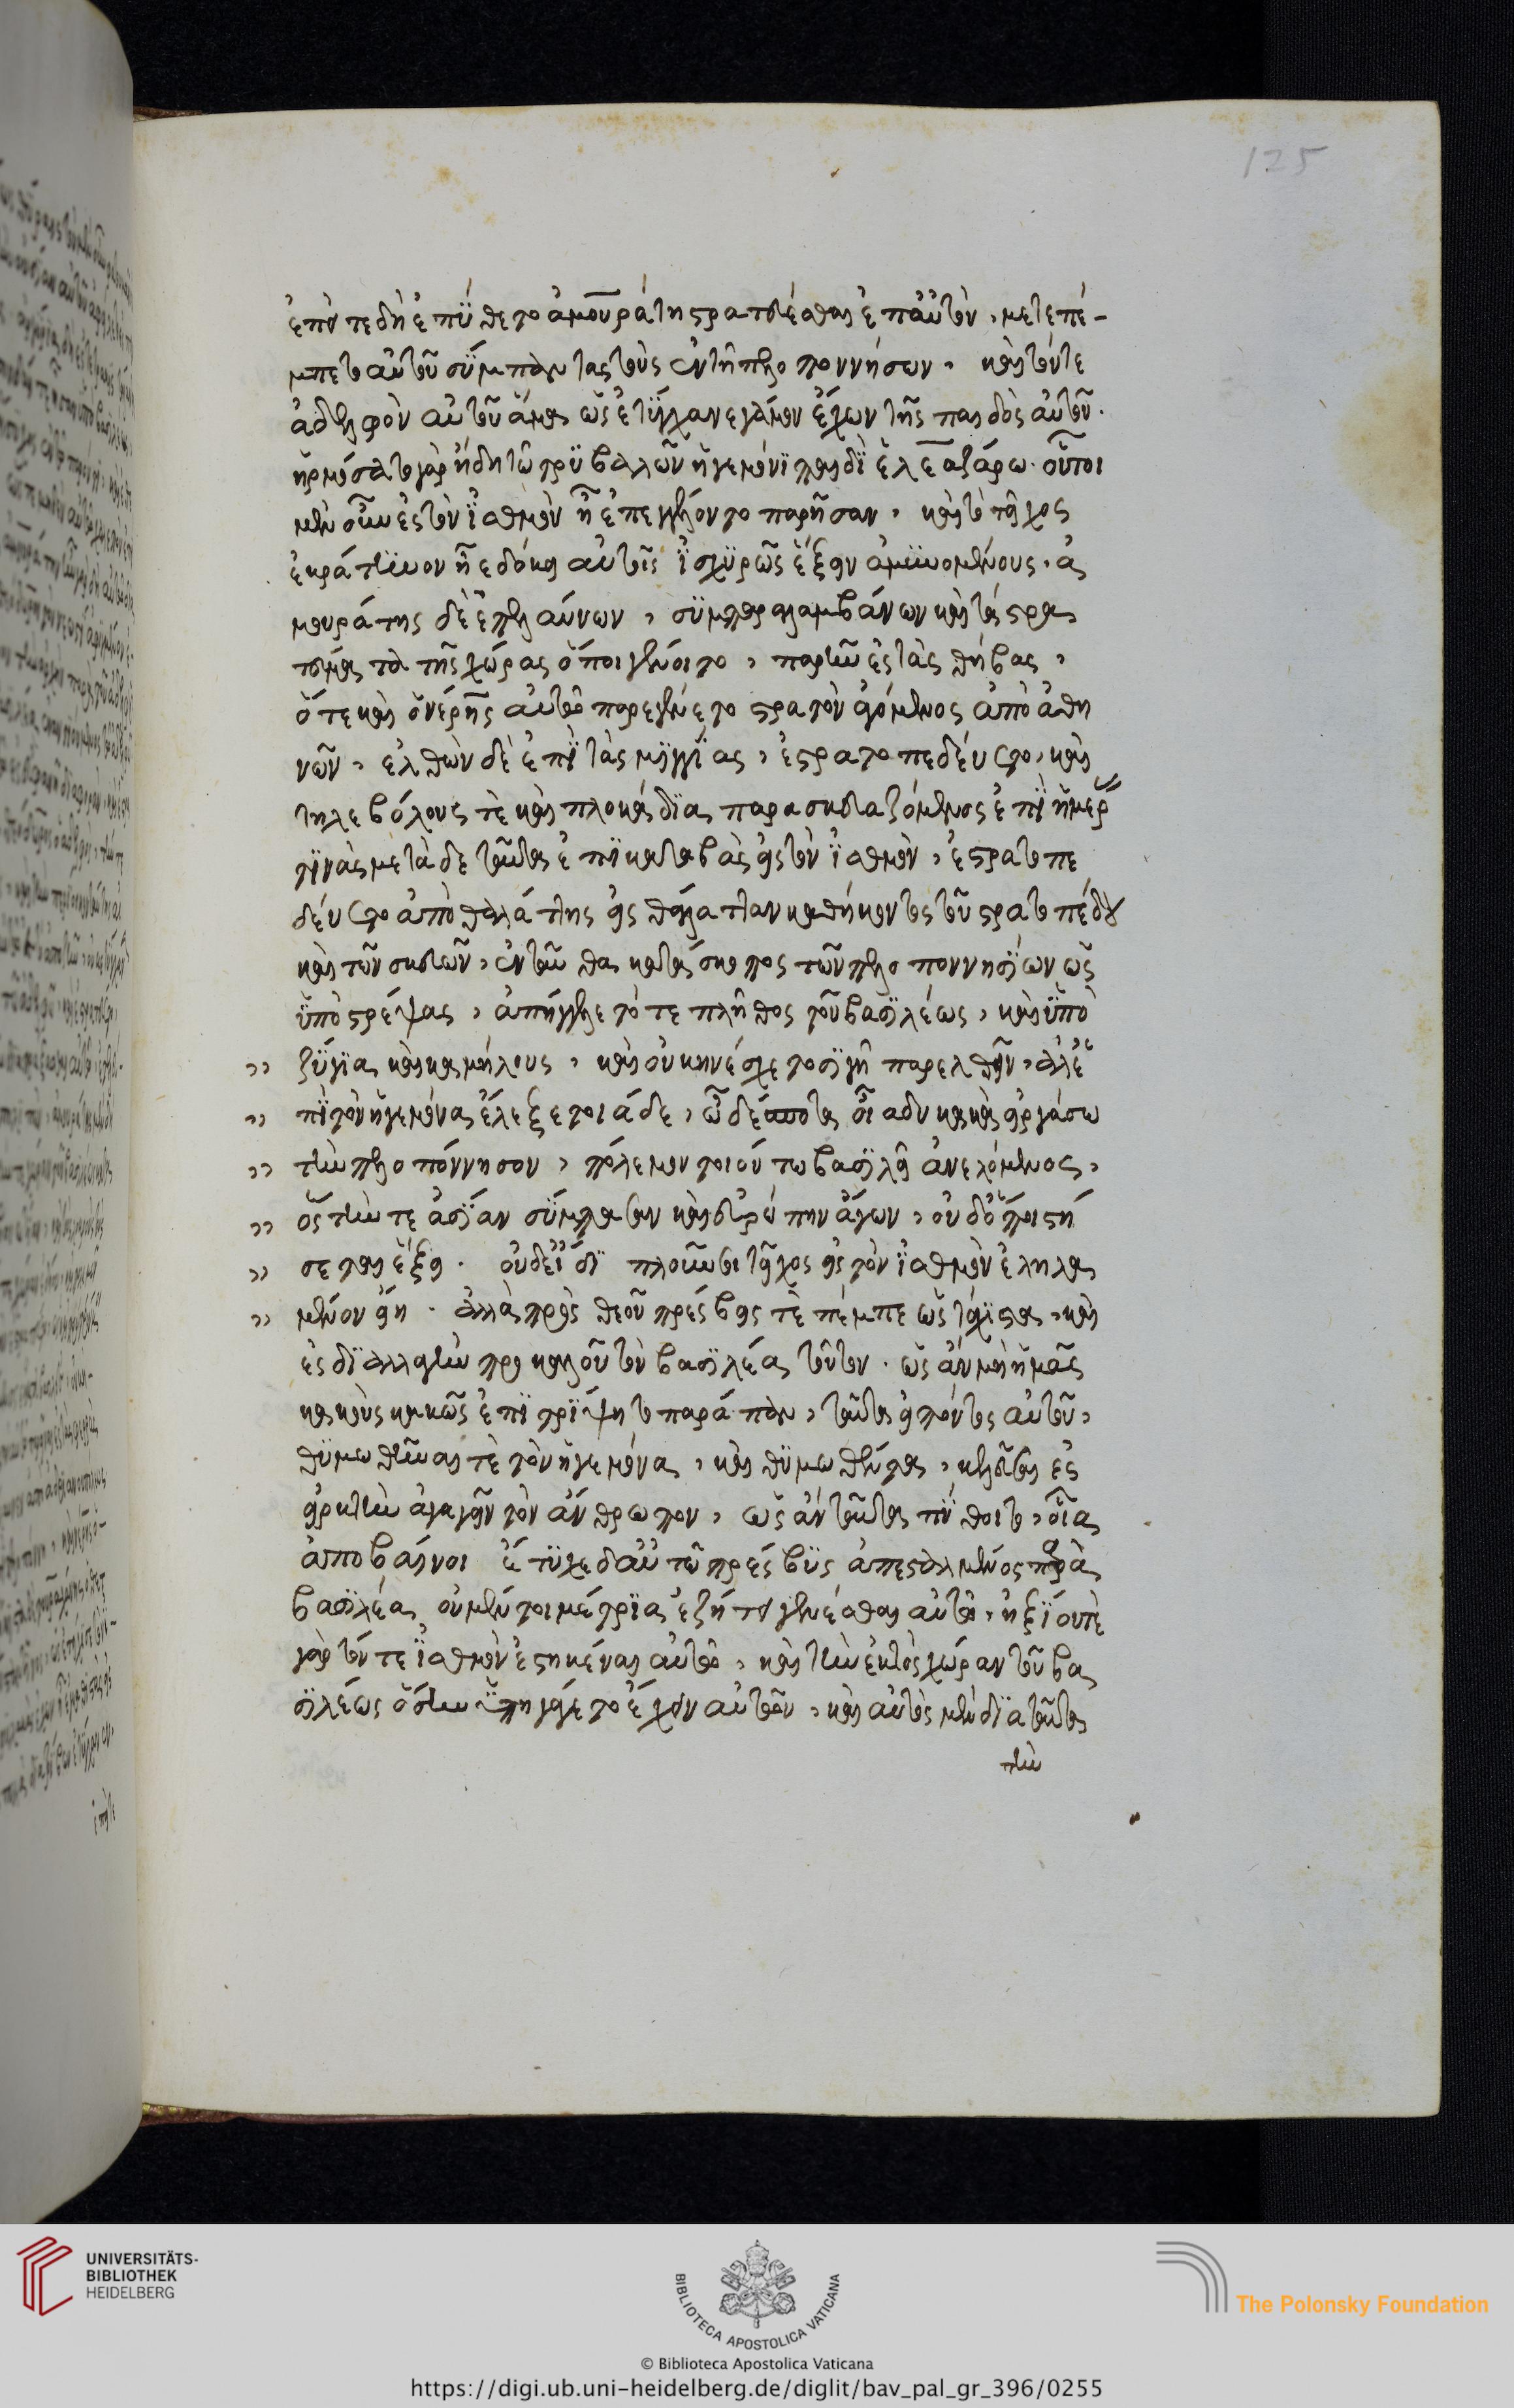 ἐπεί τε δὴ ἐπΰθετο ἀμουράτης στρατεύεσθαι ἐπ αὐτὸν, μετεπέ-
μπετο αὐτοῦ σΰμπαντας τοὺς ἐν τῇ πελοποννήσω. καὶ τόν τε
ἀδελφὸν αὐτοῦ ἅμα ὡς ἐτΰγχανε γάμον ἔχων τῆς παιδὸς αὐτοῦ.
ἡρμόσατο γὰρ ἤδη τῶ τρϋβαλῶν ἡγεμόνϊ παιδὶ ἐλεαζάρω. οὗτοι
μὲν οὖν ἐς τὸν ἰσθμὸν ἧ ἐπεγγέλοντο παρῆσαν, καὶ τὸ τεῖχος
ἐκράτυνον ἧ ἐδόκει αὐτοῖς ἰσχϋρῶς ἕξειν ἀμϋνομένους. ἀ
μουράτης δὲ ἐπελαύνων, σϋμπαραλαμβάνων καὶ τὰ στρα
τεύματα τῆς χώρας ὅποι γένοιτο, παρῆν ἐς τὰς θήβας,
ὅτε καὶ ὀνέρης αὐτῶ παρεγένετο στρατὸν ἀγόμενος ἀπὸ ἀθη
νῶν, ἐλθὼν δὲ ἐπὶ τὰς μϋγγΐας, ἐστρατοπεδεύετο, καὶ
τηλεβόλους τὲ καὶ πλοκάδϊας παρασκευαζόμενος ἐπὶ ἡμέρ
τινὰς μετὰ δὲ ταῦτα ἐπικαταβὰς εἰς τὸν ἰσθμὸν, ἐστρατοπε
δεύετο ἀπὸ θαλάττης εἰς θάλατταν καθήκοντος τοῦ στρατοπέδου
καὶ τῶν σκευῶν, ἐνταῦθα κατάσκοπος τῶν πελοποννησίων ὡς
ὑποστρέψας, ἀπήγγελε τό τε πλῆθος τοῦ βασιλέως, καὶ ὑπο
ζΰγια καὶ καμήλους, καὶ οὐκ ἠνέσχετο σιγῇ παρελθεῖν, ἀλ ἐ
πὶ τὸν ἡγεμόνα ἔλεξε τοιάδε, ὦ δέσποτα οἷα δὴ κακὰ εἰργάσω
τὴν πελοπόννησον, πόλεμον τοιούτω βασιλεῖ ἀνελόμενος,
ὃς τήν τε ἀσίαν σΰμπασαν καὶ εὐρώπην ἄγων, οὐδ ὅποι στή
σεται ἕξει. οὐδ εἰ δϊπλοῦν τὸ τεῖχος εἰς τὸν ἰσθμὸν ἐληλα
μένον εἴη. ἀλλὰ πρὸς θεοῦ πρέσβεις τὲ πέμπε ὡς τάχιστα, καὶ
ἐς διαλλαγὴν προκαλοῦ τὸν βασιλέα τοῦτον. ὡς ἂν μὴ ἡμᾶς
κακοὺς κακῶς ἐπϊτρΐψη τὸ παράπαν, ταῦτα εἰπόντος αὐτοῦ,
θϋμωθῆναι τὲ τὸν ἡγεμόνα, καὶ θϋμωθέντα, κελεῦσαι ἐς
εἱρκτὴν ἀγαγεῖν τὸν ἄνθρωπον, ὡς ἂν ταῦτα πύθοιτο, οἷα
ἀποβαίνοι ἔτϋχε δ αὖ τῆ πρέσβϋς ἀπεσταλμένος παρὰ
βασιλέα οὐ μέντοι μέτρϊα ἐζήτει γενέσθαι αὐτῶ, ἠξΐου τὲ
γὰρ τόν τε ἰσθμὸν ἑστηκέναι αὐτῶ, καὶ τὴν ἐκτὸς χώραν τοῦ βα
σιλέως ὅσην ὑπηγάγετο ἔχειν αὐτὸν, καὶ αὐτὸς μὲν διὰ ταῦτα
τὴν
125
UNIVERSITÄTS-
BIBLIOTHEK
HEIDELBERG
BIBLIOTECA APOSTOLICA VATICANA
The Polonsky Foundation
© Biblioteca Apostolica Vaticana
https://digi.ub.uni-heidelberg.de/diglit/bav_pal_gr_396/0255